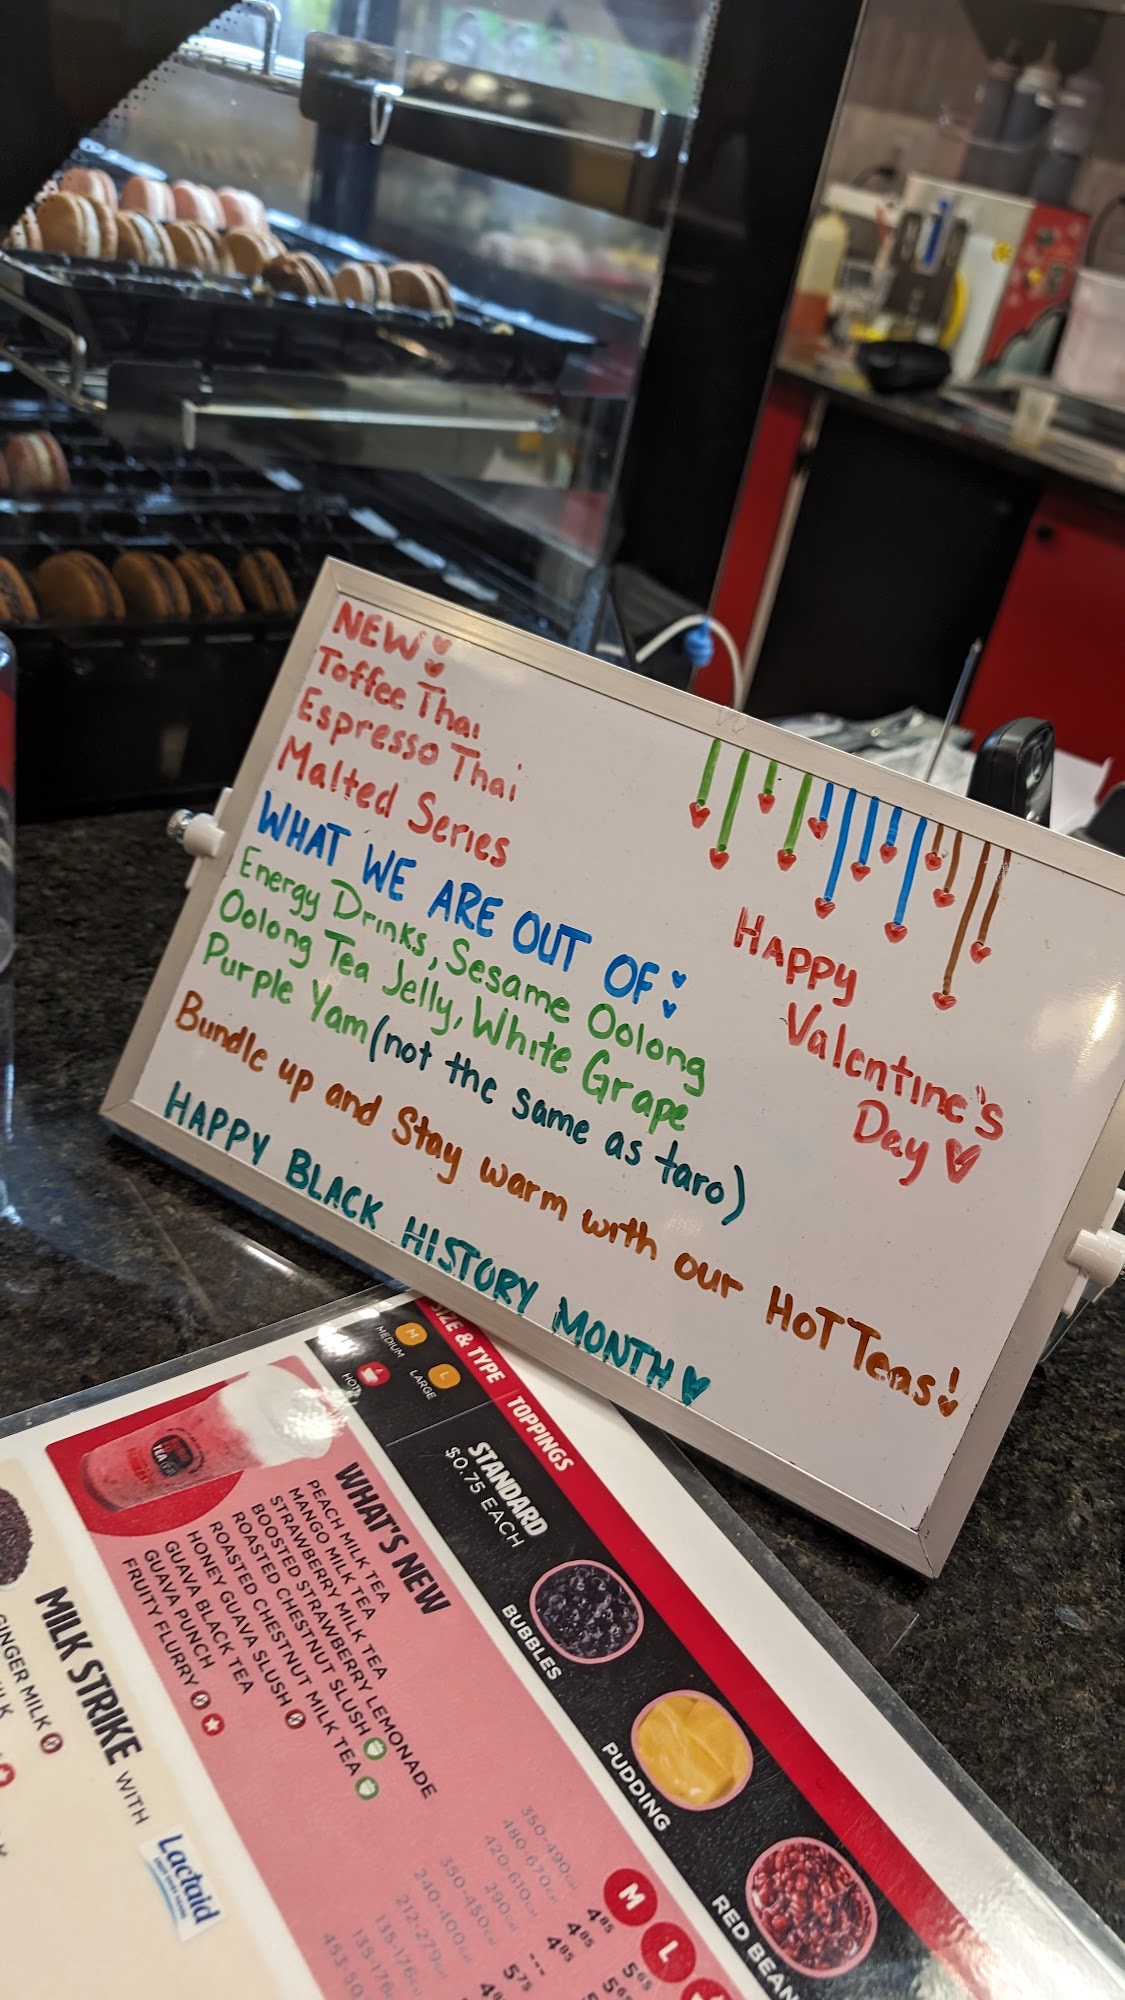 NEW!
Toffee Thai
Espresso Thai
Malted Series
WHAT WE ARE OUT OF:
Energy Drinks, Sesame Oolong
Oolong Tea Jelly, White Grape
Purple Yam (not the same as taro)
Bundle up and Stay warm with our HOT Teas!
HAPPY BLACK HISTORY MONTH
Happy
Valentine's
Day
SIZE & TYPE
TOPPINGS
M
MEDIUM
L
LARGE
HOT
STANDARD
$0.75 EACH
BUBBLES
PUDDING
RED BEAN
WHAT'S NEW
PEACH MILK TEA
MANGO MILK TEA
STRAWBERRY MILK TEA
BOOSTED STRAWBERRY LEMONADE
ROASTED CHESTNUT SLUSH
ROASTED CHESTNUT MILK TEA
HONEY GUAVA SLUSH
GUAVA BLACK TEA
GUAVA PUNCH
FRUITY FLURRY
M
L
350-490 cal
4.85
5.65
480-670 cal
4.85
420-610 cal
4.85
290 cal
---
350-450 cal
5.75
240-400 cal
212-279 cal
135-176 cal
135-176 cal
MILK STRIKE WITH
Lactaid
GINGER MILK